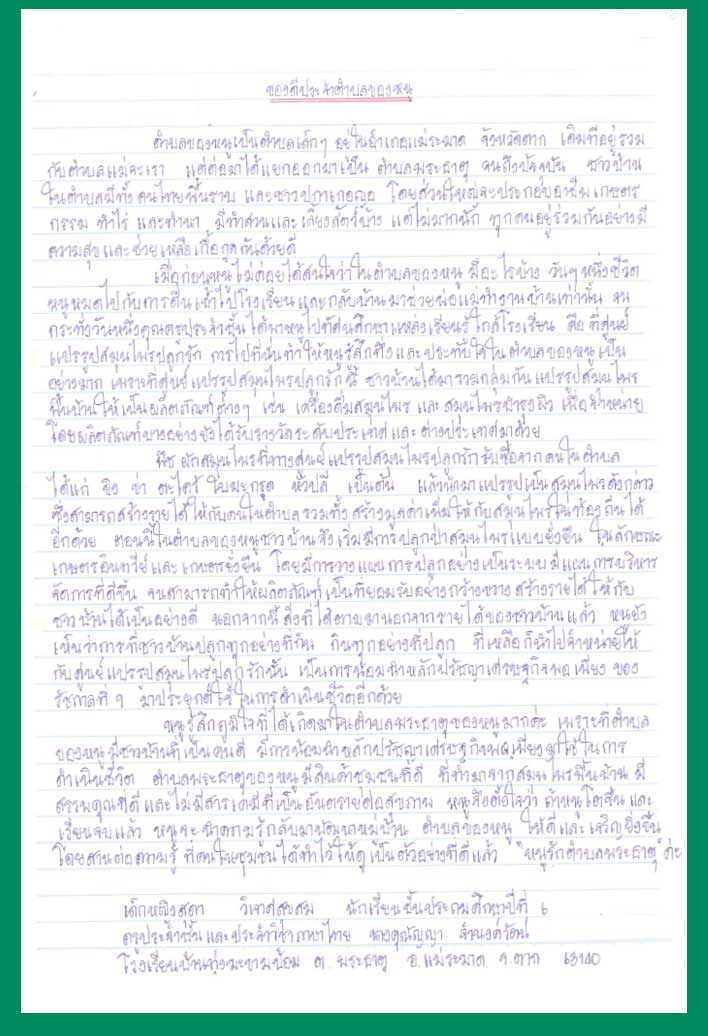 ของดีประจำตำบลของหนู
ตำบลของหนูเป็นตำบลเล็กๆ อยู่ในอำเภอแม่ระมาด จังหวัดตาก เดิมทีอยู่รวม
กับตำบลแม่จะเรา แต่ต่อมาได้แยกออกมาเป็น ตำบลพระธาตุ จนถึงปัจจุบัน ชาวบ้าน
ในตำบลมีทั้งคนไทยพื้นราบ และชาวปกาเกอญอ โดยส่วนใหญ่จะประกอบอาชีพเกษตร
กรรม ทำไร่ และทำนา มีทำสวนและเลี้ยงสัตว์บ้าง แต่ไม่มากนัก ทุกคนอยู่ร่วมกันอย่างมี
ความสุขและช่วยเหลือเกื้อกูลกันด้วยดี
เมื่อก่อนหนูไม่ค่อยได้สนใจว่าในตำบลของหนู มีอะไรบ้าง วันๆ หนึ่งชีวิต
หนูหมดไปกับการตื่นเช้าไปโรงเรียนและกลับบ้านมาช่วยพ่อแม่ทำงานบ้านเท่านั้น จน
กระทั่งวันหนึ่งคุณครูประจำชั้นได้พาหนูไปทัศนศึกษาแหล่งเรียนรู้ใกล้โรงเรียน คือ ที่ศูนย์
แปรรูปสมุนไพรปลูกรัก การไปที่นั่นทำให้หนูรู้สึกทึ่งและประทับใจในตำบลของหนูเป็น
อย่างมาก เพราะที่ศูนย์แปรรูปสมุนไพรปลูกรักนี้ ชาวบ้านได้มารวมกลุ่มกันแปรรูปสมุนไพร
พื้นบ้านให้เป็นผลิตภัณฑ์ต่างๆ เช่น เครื่องดื่มสมุนไพร และสมุนไพรบำรุงผิว เพื่อจำหน่าย
โดยผลิตภัณฑ์บางอย่างยังได้รับรางวัลระดับประเทศและต่างประเทศมาด้วย
พืช ผักสมุนไพรที่ทางศูนย์แปรรูปสมุนไพรปลูกรักรับซื้อจากคนในตำบล
ได้แก่ ขิง ข่า ตะไคร้ ใบมะกรูด หัวปลี เป็นต้น แล้วนำมาแปรรูปเป็นสมุนไพรดังกล่าว
ซึ่งสามารถสร้างรายได้ให้กับคนในตำบล รวมทั้งสร้างมูลค่าเพิ่มให้กับสมุนไพรในท้องถิ่นได้
อีกด้วย ตอนนี้ในตำบลของหนูชาวบ้านจึงเริ่มมีการปลูกป่าสมุนไพรแบบยั่งยืน ในลักษณะ
เกษตรอินทรีย์และเกษตรยั่งยืน โดยมีการวางแผนการปลูกอย่างเป็นระบบ มีแผนการบริหาร
จัดการที่ดีขึ้น จนสามารถทำให้ผลิตภัณฑ์เป็นที่ยอมรับอย่างกว้างขวาง สร้างรายได้ให้กับ
ชาวบ้านได้เป็นอย่างดี นอกจากนี้สิ่งที่ได้ตามมานอกจากรายได้ของชาวบ้านแล้ว หนูยัง
เห็นว่าการที่ชาวบ้านปลูกทุกอย่างที่กิน กินทุกอย่างที่ปลูก ที่เหลือก็นำไปจำหน่ายให้
กับศูนย์แปรรูปสมุนไพรปลูกรักนั้น เป็นการน้อมนำหลักปรัชญาเศรษฐกิจพอเพียง ของ
รัชกาลที่ ๙ มาประยุกต์ใช้ในการดำเนินชีวิตอีกด้วย
หนูรู้สึกภูมิใจที่ได้เกิดมาในตำบลพระธาตุของหนูมากค่ะ เพราะที่ตำบล
ของหนูมีชาวบ้านที่เป็นคนดี มีการน้อมนำหลักปรัชญาเศรษฐกิจพอเพียงมาใช้ในการ
ดำเนินชีวิต ตำบลพระธาตุของหนูมีสินค้าชุมชนที่ดี ที่ทำมาจากสมุนไพรพื้นบ้าน มี
สรรพคุณที่ดีและไม่มีสารเคมีที่เป็นอันตรายต่อสุขภาพ หนูจึงตั้งใจว่า ถ้าหนูโตขึ้นและ
เรียนจบแล้ว หนูจะนำความรู้กลับมาพัฒนาหมู่บ้าน ตำบลของหนู ให้ดีและเจริญยิ่งขึ้น
โดยสานต่อความรู้ ที่คนในชุมชนได้ทำไว้ให้ดูเป็นตัวอย่างที่ดีแล้ว "หนูรักตำบลพระธาตุ" ค่ะ
เด็กหญิงสุดา วิเทศสุขสม นักเรียนชั้นประถมศึกษาปีที่ ๖
ครูประจำชั้นและประจำวิชาภาษาไทย จำนงค์รัตน์
โรงเรียนบ้านทุ่งมะขามป้อม ต. พระธาตุ อ.แม่ระมาด จ.ตาก 63140